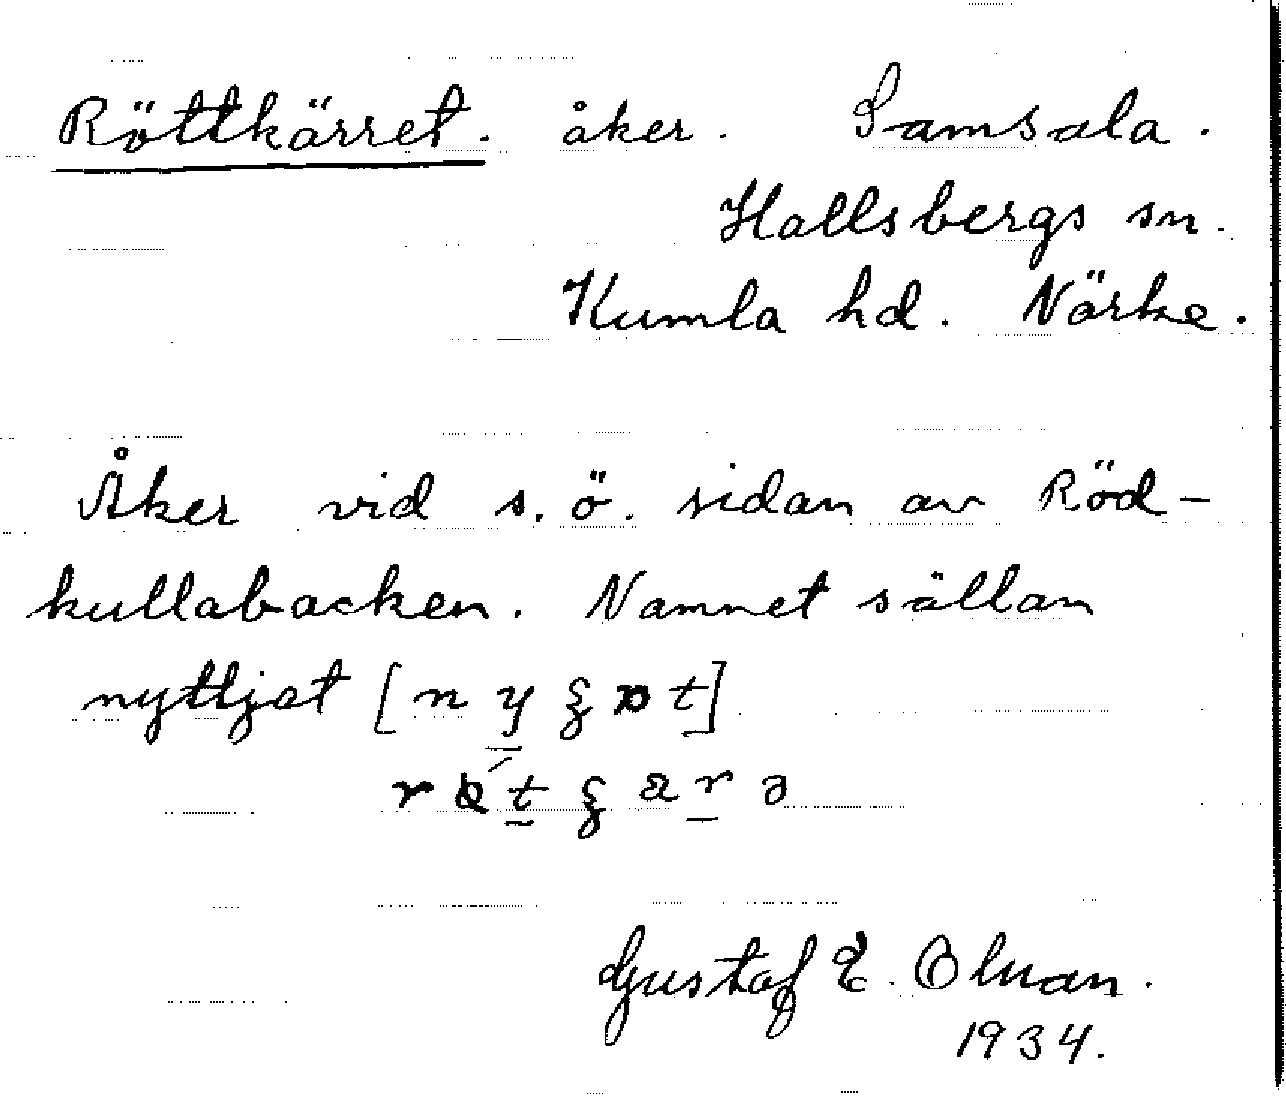 Röttkärret. åker. Samsala.
Hallsbergs sn.
Kumla hd. Närke.
Åker vid s. ö. sidan av Röd-
kullabacken. Namnet sällan
nyttjat
Gustaf E. Olman.
1934.